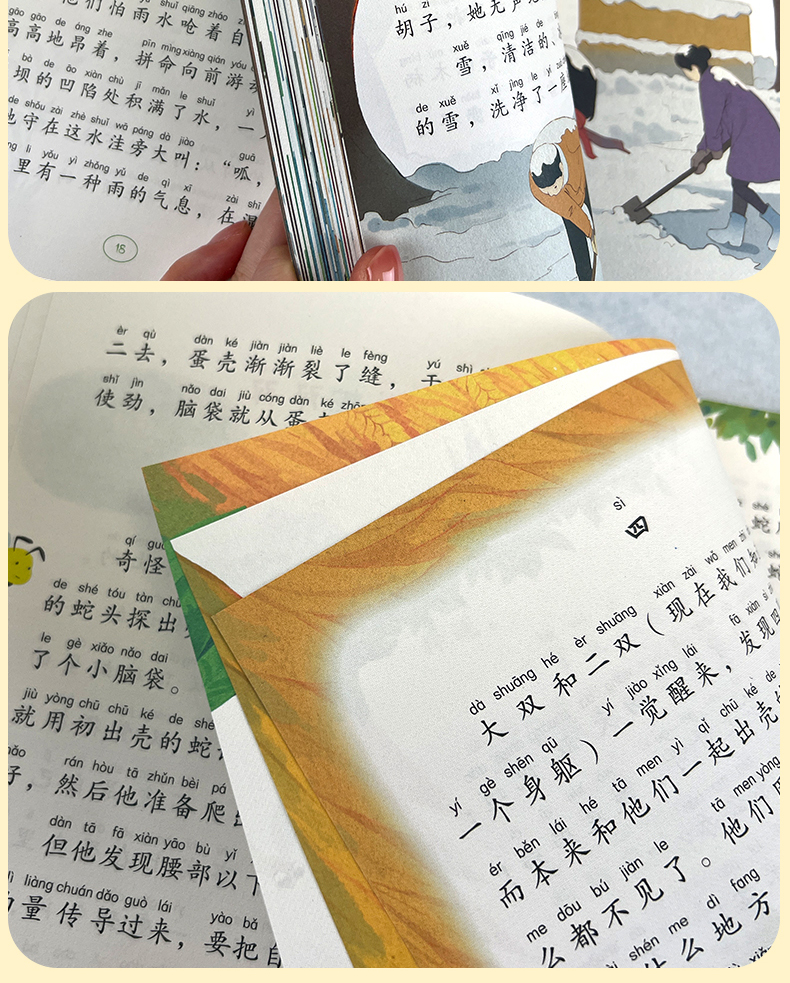 们怕雨水呛着自
gāo gāo de áng zhe pīn mìng xiàng qián yóu
高高地昂着，拼命向前游
bà de āo xiàn chù jī mǎn le shuǐ yì
坝的凹陷处积满了水，一
shǒu zài zhè shuǐ wā páng dà jiào guā
守在这水洼旁大叫：“呱，
lǐ yǒu yì zhǒng yǔ de qì xī zài shī
里有一种雨的气息，在
18
hú zi
胡子，她无声
xuě qīng jié de
雪，清洁的、
de xuě xǐ jìng le yí
的雪，洗净了一座
èr qù dàn ké jiàn jiàn liè le fèng yú shì
二去，蛋壳渐渐裂了缝，于
shǐ jìn nǎo dai jiù cóng dàn ké
使劲，脑袋就从蛋
qí guài
奇怪
de shé tóu tàn chū
的蛇头探出
le gè xiǎo nǎo dai
了个小脑袋。
jiù yòng chū chū ké de shé
就用初出壳的蛇
rán hòu tā zhǔn bèi pá
，然后他准备爬
dàn tā fā xiàn yāo bù yǐ
但他发现腰部以下
liàng chuán dǎo guò lái yào bǎ
量传导过来，要把自
sì
四
dà shuāng hé èr shuāng xiàn zài wǒ men
大双和二双（现在我们
yí gè shēn qū yí jiào xǐng lái fā xiàn sì
一个身躯）一觉醒来，发现四
ér běn lái hé tā men yì qǐ chū ké de
而本来和他们一起出壳的
me dōu bú jiàn le tā men yòng
么都不见了。他们
shén me dì fang
什么地方